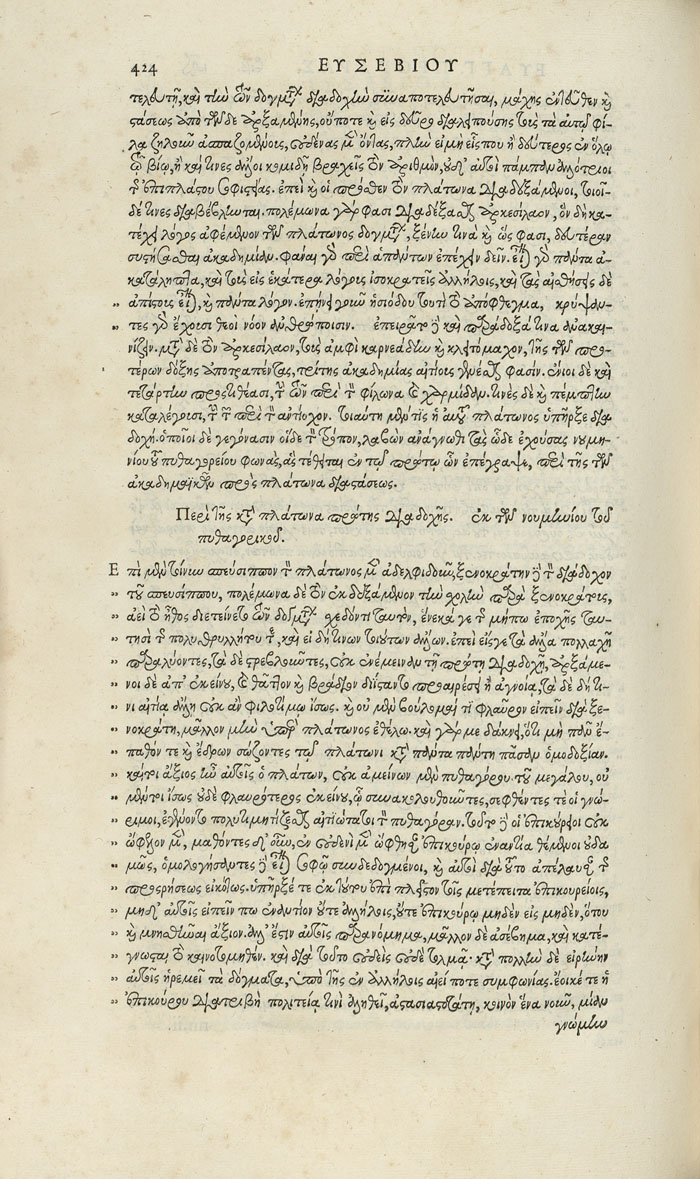 424 ΕΥΣΕΒΙΟΥ
τελευτῇ, καὶ τὴν τῶν δογμάτων διαδοχὴν συναποτελευτῆσαι, μάχης ἐντεῦθεν καὶ
στάσεως ἀπὸ τῶν δε ἀρξαμένης, οὔποτε καὶ εἰς δεῦρο διαλιπούσης τοῖς τὰ αὐτῷ φί-
λα ζηλοῦν ἀσπαζομένοις, οὐδένας μὲν ὄντας, πλὴν εἰ μὴ εἷς που ἢ δεύτερος ἐν ὅλῳ
τῷ βίῳ, ἢ καί τινες ἄλλοι κομιδῇ βραχεῖς τὸν ἀριθμὸν, οὐδ' αὐτοὶ πάμπαν ἀλλότριοι
τῆς ἐπιπλάστου σοφιστείας. ἐπεὶ καὶ οἱ πρόσθεν τὸν πλάτωνα διαδεξάμενοι, τοιοί-
δε τινες διαβέβληνται. πολέμωνα γάρ φασι διαδέξασθαι ἀρκεσίλαον, ὃν δὴ κα-
τέχει λόγος ἀφέμενον τῶν πλάτωνος δογμάτων, ξένην τινὰ καὶ ὥς φασι, δευτέραν
συστήσασθαι ἀκαδημίαν. φάναι γὸ περὶ ἁπάντων ἐπέχειν δεῖν. εἶναι γὸ πάντα ἀ-
κατάληπτα, καὶ τοὺς εἰς ἑκάτερα λόγους ἰσοκρατεῖς ἀλλήλοις, καὶ τὰς αἰσθήσεις δὲ
" ἀπίστους εἶναι, καὶ πάντα λόγον. ἐπῄνει γοῦν ἡσιόδου τουτὶ τὸ ἀπόφθεγμα, κρύψαν-
" τες γὸ ἔχουσι θεοὶ νόον ἀνθρώποισιν. ἐπειρᾶτο δὲ καὶ παράδοξά τινα ἀνακαι-
νίζειν. μετὰ δὲ τὸν ἀρκεσίλαον, τοὺς ἀμφὶ καρνεάδην καὶ κλειτόμαχον, τῆς τῶν προ-
τέρων δόξης ἀποτραπέντας, τρίτης ἀκαδημίας αἰτίους γενέσθαι φασίν. ἔνιοι δὲ καὶ
τετάρτην προστιθέασι, τὴν τῶν περὶ τὸν φίλωνα καὶ χαρμίδαν. τινὲς δὲ καὶ πέμπτην
καταλέγουσι, τὴν τῶν περὶ τὸν ἀντίοχον. τοιαύτη μὲν τὶς ἡ αὐτοῦ πλάτωνος ὑπῆρξε δια-
δοχή. ὁποῖοι δὲ γεγόνασιν οἵδε τὸν τρόπον, λαβὼν ἀνάγνωθι τὰς ὧδε ἐχούσας νουμη-
νίου τοῦ πυθαγορείου φωνὰς, ἃς τέθειται ἐν τῷ πρώτῳ ὧν ἐπέγραψε, περὶ τῆς τῶν
ἀκαδημαϊκῶν πρὸς πλάτωνα διαστάσεως.
Περὶ τῆς κατὰ πλάτωνα πρώτης διαδοχῆς. ἐκ τῶν νουμηνίου τοῦ
πυθαγορικοῦ.
Ἐπὶ μὲν τοίνυν σπεύσιππον τὸν πλάτωνος μὲν ἀδελφιδοῦν, ξενοκράτην δὲ τὸν διάδοχον
" τοῦ σπευσίππου, πολέμωνα δὲ τὸν ἐκδεξάμενον τὴν σχολὴν παρὰ ξενοκράτους,
" ἀεὶ τὸ ἦθος διετείνετο τῶν δογμάτων σχεδὸν τι ταυτὸν, ἕνεκά γε τῆς μήπω ἐποχῆς ταυ-
" τησὶ τῆς πολυθρυλλήτου τε, καὶ εἰ δή τινων τοιούτων ἄλλων. ἐπεὶ εἴς γε τὰ ἄλλα πολλαχῇ
" παραλύοντες, τὰ δὲ στρεβλοῦντες, οὐκ ἐνέμειναν τῇ πρώτῃ διαδοχῇ, ἀρξάμε-
" νοι δὲ ἀπ' ἐκείνου, καὶ θᾶττον καὶ βράδιον διίσταντο προαιρέσει ἢ ἀγνοίᾳ, τὰ δὲ δή τι-
" νι αἰτίᾳ ἄλλῃ οὐκ ἀφιλοτίμῳ ἴσως. καὶ οὐ μὲν βούλομαί τι φλαῦρον εἰπεῖν διὰ ξε-
" νοκράτη, μᾶλλον μὴν ὑπὲρ πλάτωνος ἐθέλω. καὶ γάρ με δάκνει, ὅτι μὴ πᾶν ἔ-
" παθόν τε καὶ ἔδρων σώζοντες τῷ πλάτωνι κατὰ πάντα πάντῃ πᾶσαν ὁμοδοξίαν.
" καίτοι ἄξιος ἦν αὐτοῖς ὁ πλάτων, οὐκ ἀμείνων μὲν πυθαγόρου τοῦ μεγάλου, οὐ
" μέντοι ἴσως οὐδὲ φλαυρότερος ἐκείνου, ᾧ συνακολουθοῦντες, σεφθέντες τε οἱ γνώ-
" ριμοι, ἐγένοντο πολυτιμητίζεσθαι αἰτιώτατοι τὸν πυθαγόραν. τοῦτο δὲ οἱ ἐπικούρειοι οὐκ
" ὤφελον μὲν, μαθόντες δ' οὖν, ἐν οὐδενὶ μὲν ὤφθησαν ἐπικούρῳ ἐναντία θέμενοι οὐδα-
" μῶς, ὁμολογήσαντες δὲ εἶναι σοφῷ συνδεδογμένοι, καὶ αὐτοὶ διὰ τοῦτο ἀπέλαυσαν τῆς
" προσρήσεως εἰκότως. ὑπῆρξέ τε ἐκ τούτου ἐπὶ πλεῖστον τοῖς μετέπειτα ἐπικουρείοις,
" μηδ' αὐτοῖς εἰπεῖν πω ἐναντίον οὔτε ἀλλήλοις, οὔτε ἐπικούρῳ μηδὲν εἰς μηδὲν, ὅτου
" καὶ μνησθῆναι ἄξιον. ἀλλ' ἔστιν αὐτοῖς παρανόμημα, μᾶλλον δὲ ἀσέβημα, καὶ κατέ-
" γνωσται τὸ καινοτομηθέν. καὶ διὰ τοῦτο οὐδεὶς οὐδὲ τολμᾷ. κατὰ πολλὴν δὲ εἰρήνην
" αὐτοῖς ἠρεμεῖ τὰ δόγματα, ὑπὸ τῆς ἐν ἀλλήλοις αἰεί ποτε συμφωνίας. ἔοικέ τε ἡ
" ἐπικούρου διατριβὴ πολιτείᾳ τινὶ ἀληθεῖ, ἀστασιαστοτάτῃ, κοινὸν ἕνα νοῦν, μίαν
γνώμην